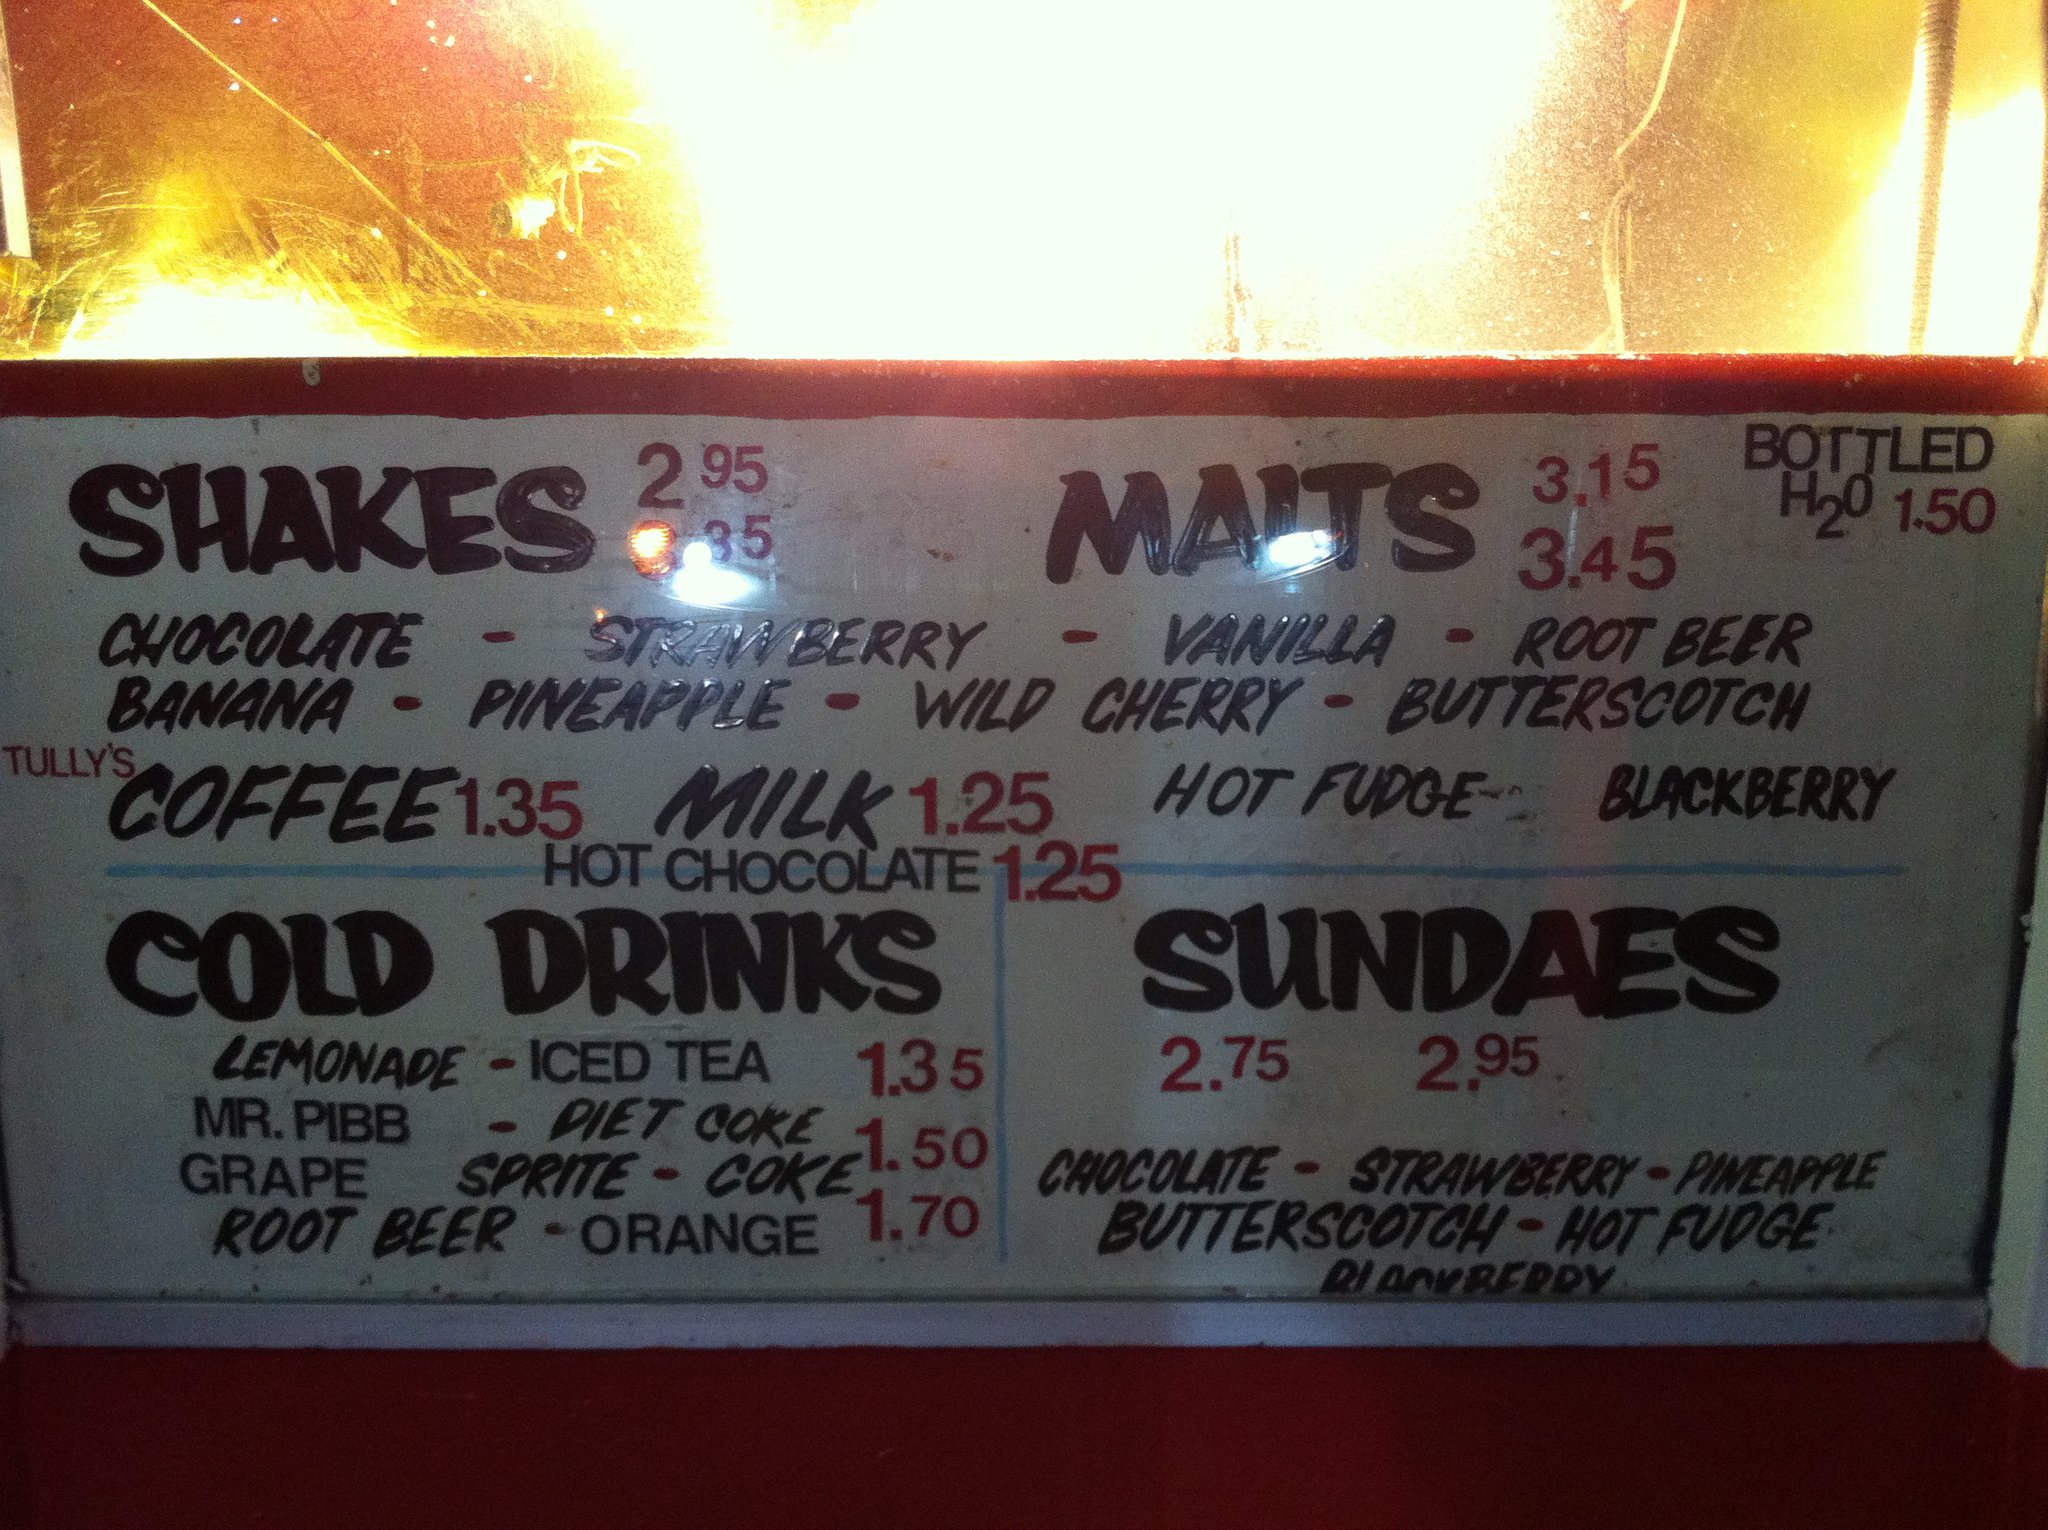 SHAKES 2.95 MALTS 3.15 BOTTLED
.35 3.45 H2O 1.50
CHOCOLATE - STRAWBERRY - VANILLA - ROOT BEER
BANANA - PINEAPPLE - WILD CHERRY - BUTTERSCOTCH
TULLY'S COFFEE 1.35 MILK 1.25 HOT FUDGE - BLACKBERRY
HOT CHOCOLATE 1.25
COLD DRINKS
LEMONADE - ICED TEA 1.35
MR. PIBB - DIET COKE 1.50
GRAPE SPRITE - COKE
ROOT BEER - ORANGE 1.70
SUNDAES
2.75 2.95
CHOCOLATE - STRAWBERRY - PINEAPPLE
BUTTERSCOTCH - HOT FUDGE
BLACKBERRY